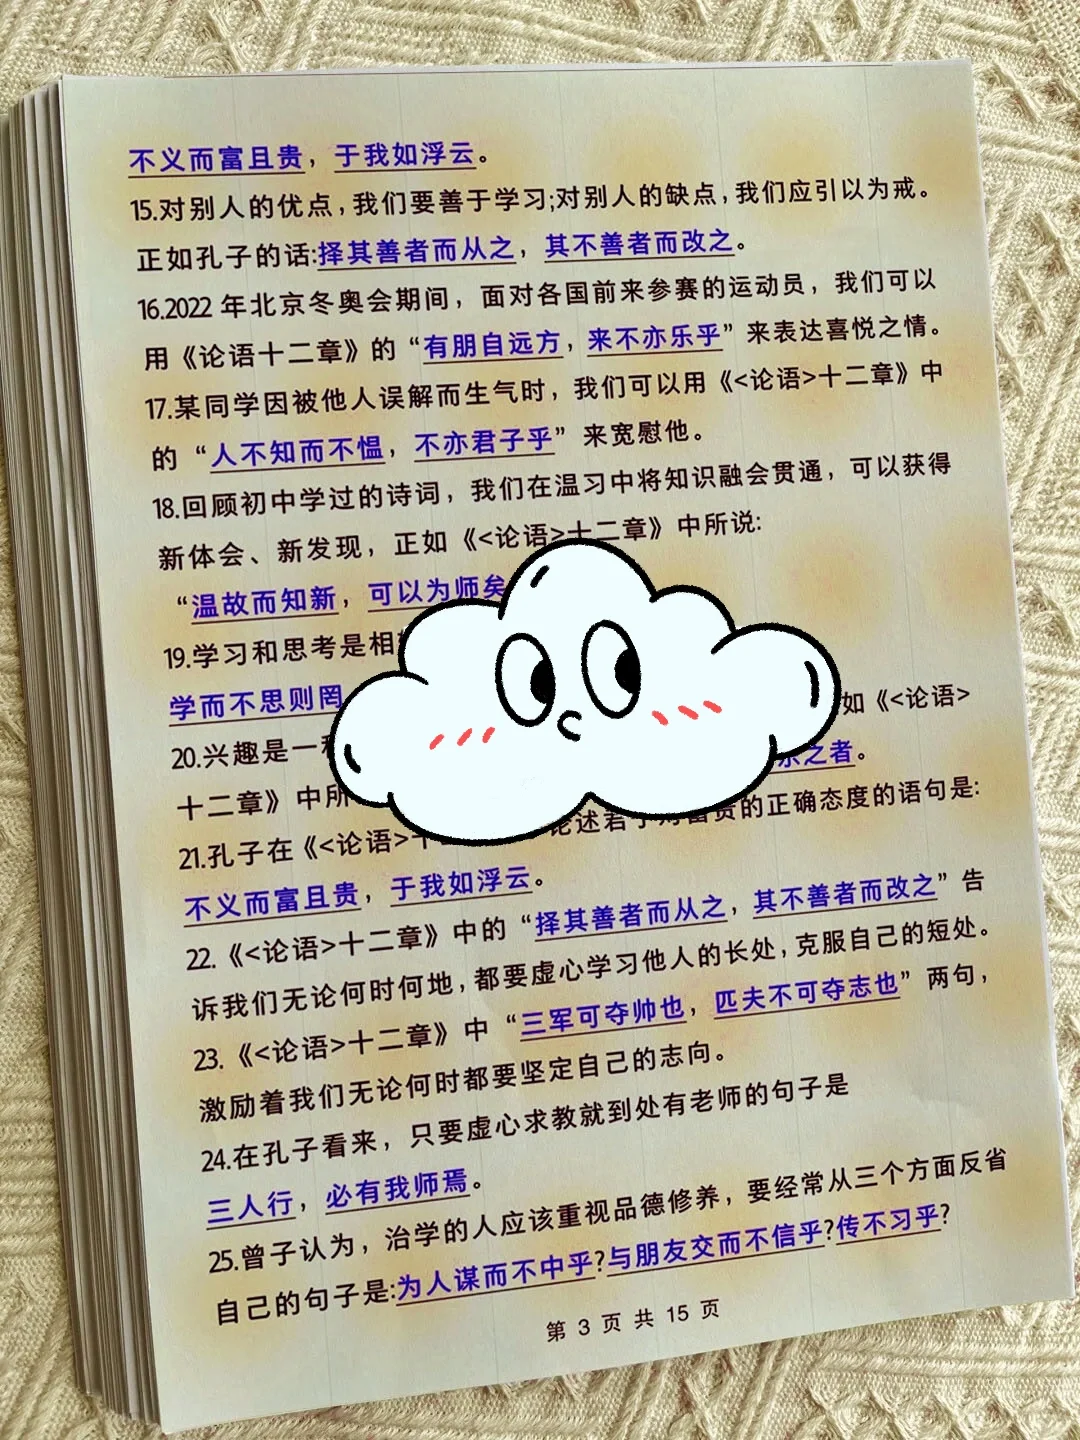 不义而富且贵，于我如浮云。
15.对别人的优点,我们要善于学习;对别人的缺点,我们应引以为戒。
正如孔子的话:择其善者而从之，其不善者而改之。
16.2022 年北京冬奥会期间，面对各国前来参赛的运动员，我们可以
用《论语十二章》的“有朋自远方，来不亦乐乎”来表达喜悦之情。
17.某同学因被他人误解而生气时，我们可以用《<论语>十二章》中
的“人不知而不愠，不亦君子乎”来宽慰他。
18.回顾初中学过的诗词，我们在温习中将知识融会贯通，可以获得
新体会、新发现，正如《<论语>十二章》中所说:
“温故而知新，可以为师矣
19.学习和思考是相
学而不思则罔
20.兴趣是一 如《<论语>
十二章》中所 乐之者。
21.孔子在《<论语> 论述君子对富贵的正确态度的语句是:
不义而富且贵，于我如浮云。
22.《<论语>十二章》中的“择其善者而从之，其不善者而改之”告
诉我们无论何时何地,都要虚心学习他人的长处,克服自己的短处。
23.《<论语>十二章》中“三军可夺帅也，匹夫不可夺志也”两句，
激励着我们无论何时都要坚定自己的志向。
24.在孔子看来，只要虚心求教就到处有老师的句子是
三人行，必有我师焉。
25.曾子认为，治学的人应该重视品德修养，要经常从三个方面反省
自己的句子是:为人谋而不中乎?与朋友交而不信乎?传不习乎?
第 3 页 共 15 页